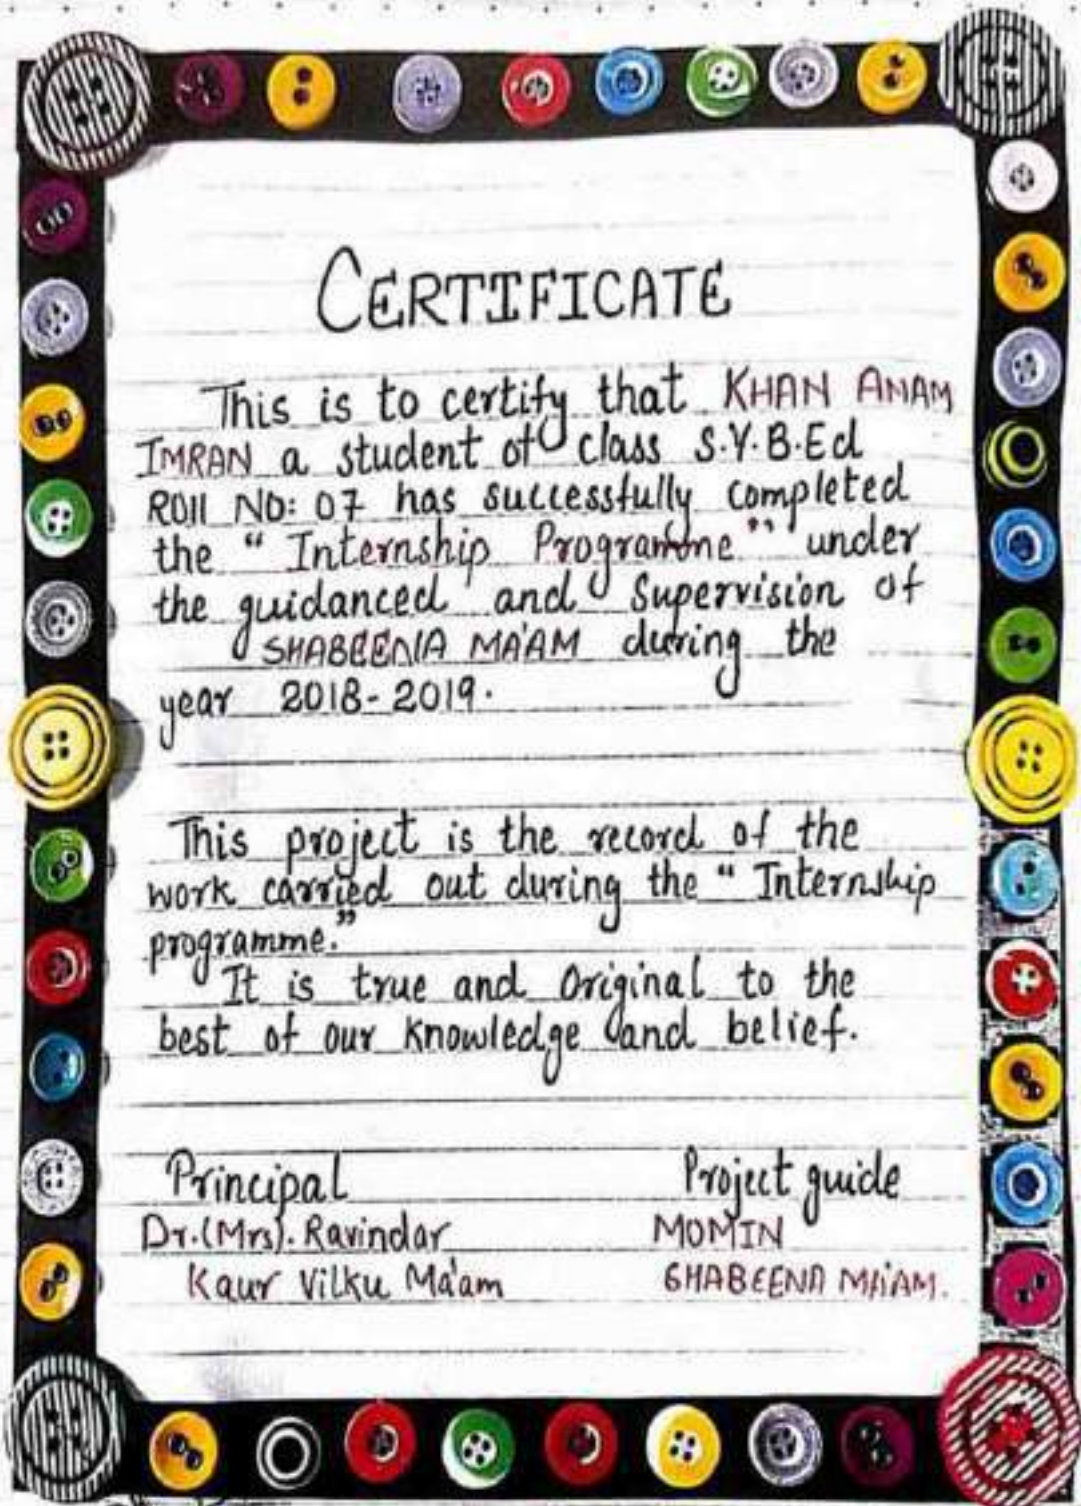 CERTIFICATE
This is to certify that KHAN ANAM
IMRAN a student of class S.Y.B.Ed
ROll NO: 07 has successfully completed
the " Internship Programme" under
the guidanced and Supervision of
SHABEENA MA'AM during the
year 2018-2019.
This project is the record of the
work carried out during the " Internship
programme."
It is true and Original to the
best of our knowledge and belief.
Principal Project guide
Dr.(Mrs). Ravindar MOMIN
Kaur Vilku Ma'am SHABEENA MA'AM.